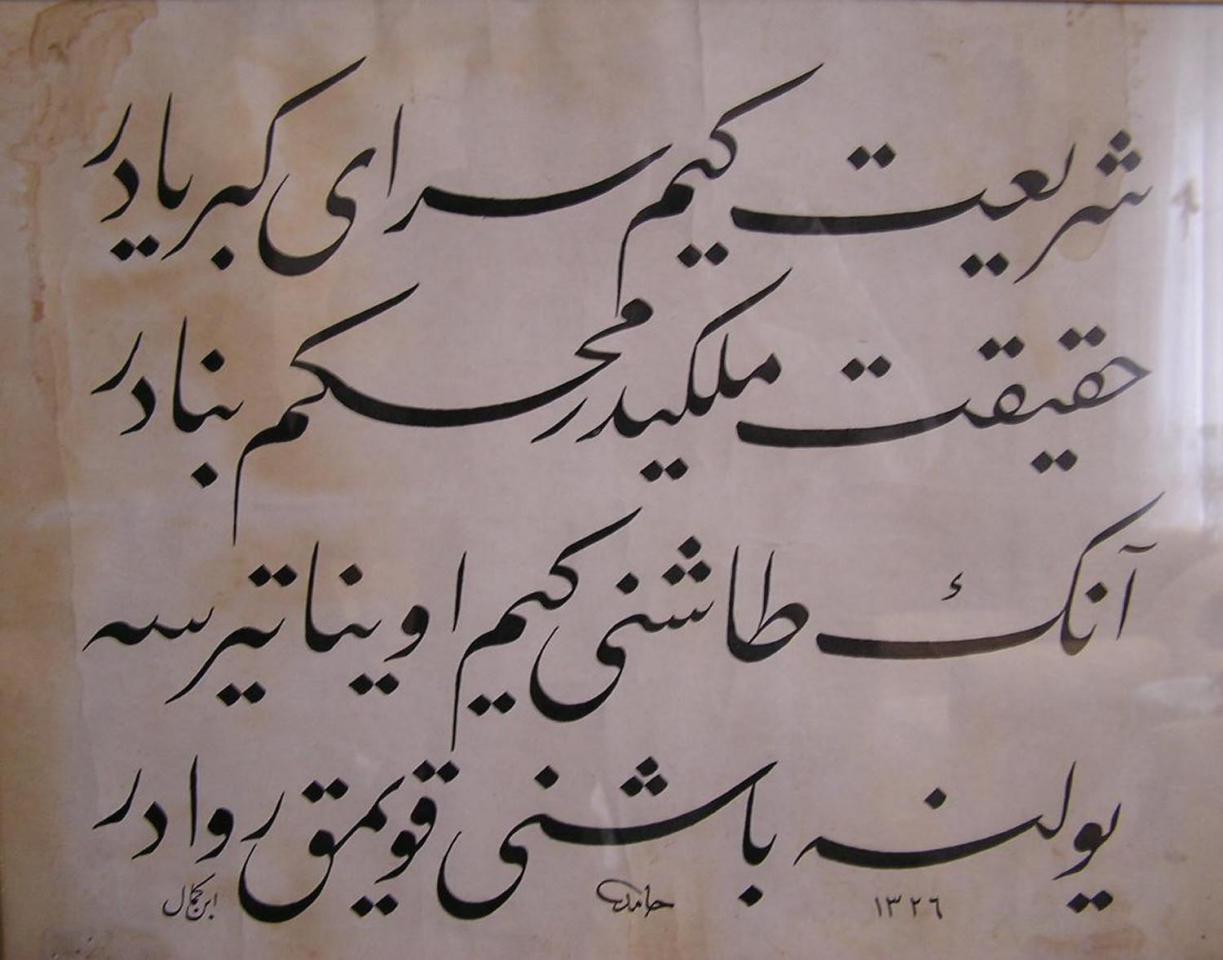 شریعت کیم سرای کبریادر
حقیقت ملکیدر محکم بنادر
آنک طاشنی کیم اویناتیرسه
یولنه باشنی قویمق روادر
١٣٢٦ حامد ابن کمال